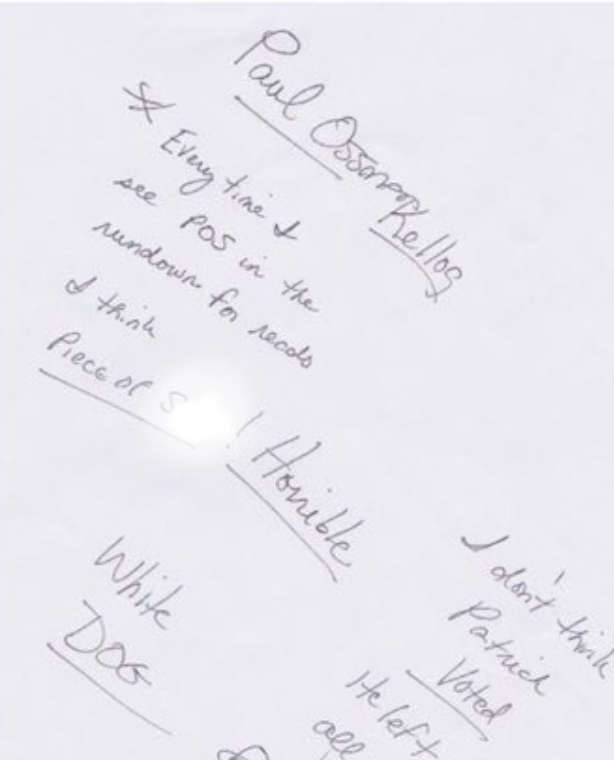 Paul Ossmann
Kellog
* Every time I
see POS in the
rundown for reads
I think
Piece of S !
Horrible
White
DOG
I don't think
Patrick
Voted
He left
all